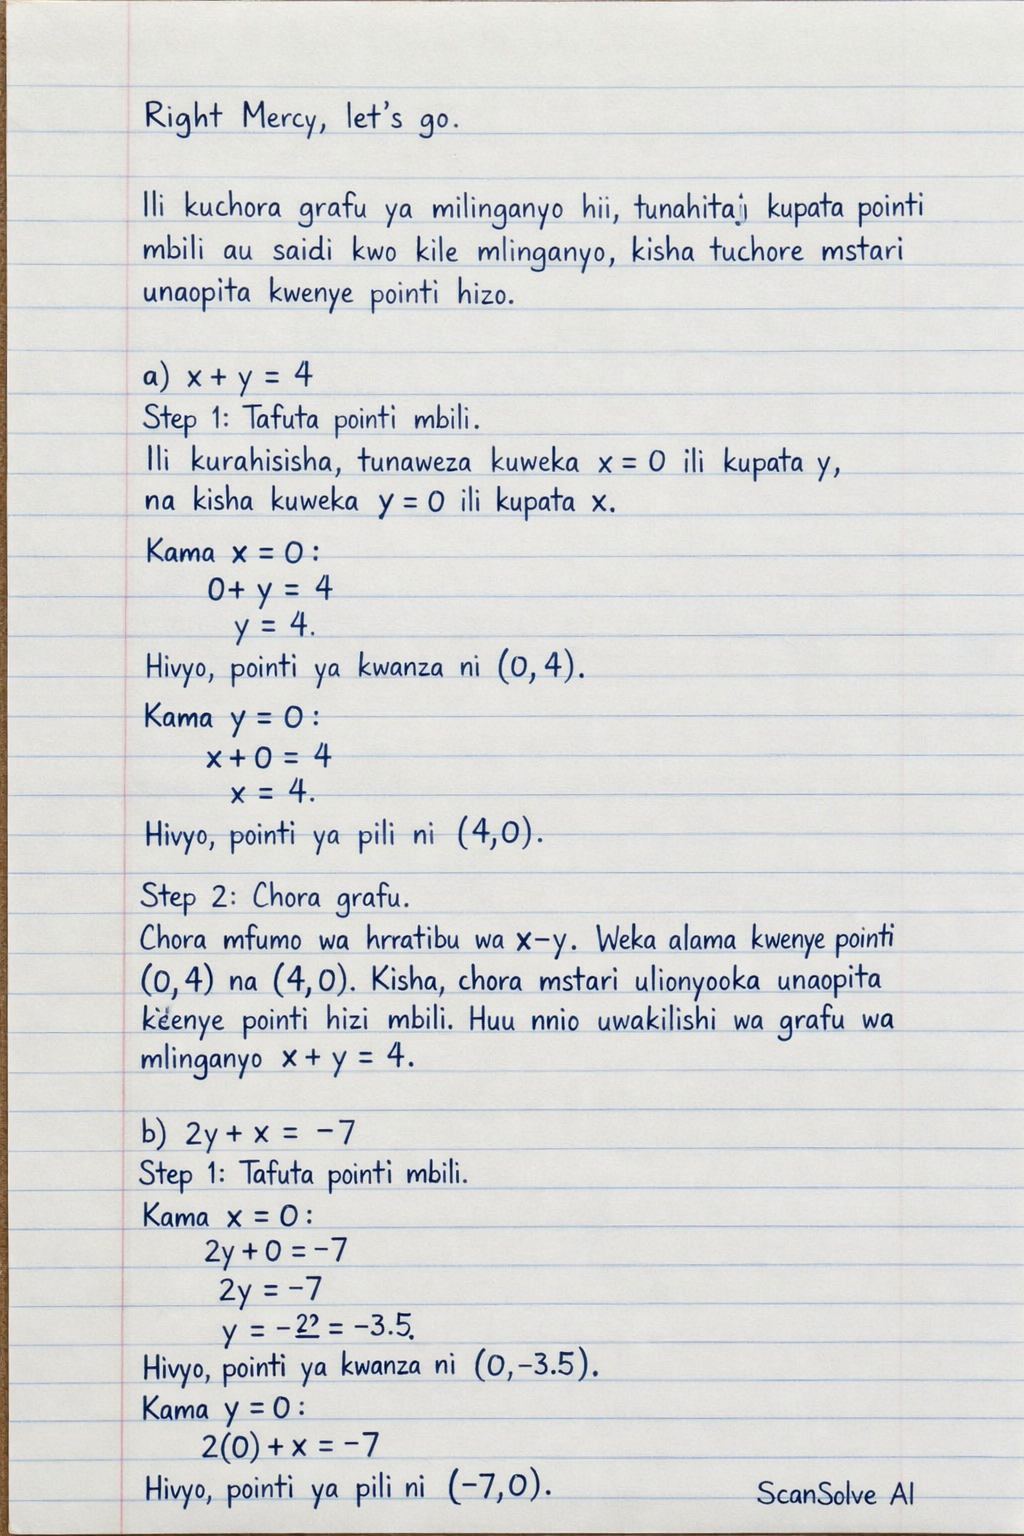 Right Mercy, let's go.
Ili kuchora grafu ya milinganyo hii, tunahitaji kupata pointi
mbili au saidi kwo kile mlinganyo, kisha tuchore mstari
unaopita kwenye pointi hizo.
a) x + y = 4
Step 1: Tafuta pointi mbili.
Ili kurahisisha, tunaweza kuweka x = 0 ili kupata y,
na kisha kuweka y = 0 ili kupata x.
Kama x = 0:
0 + y = 4
y = 4.
Hivyo, pointi ya kwanza ni (0, 4).
Kama y = 0:
x + 0 = 4
x = 4.
Hivyo, pointi ya pili ni (4,0).
Step 2: Chora grafu.
Chora mfumo wa hrratibu wa x-y. Weka alama kwenye pointi
(0,4) na (4,0). Kisha, chora mstari ulionyooka unaopita
pointi hizi mbili. Huu nnio uwakilishi wa grafu wa
mlinganyo x + y = 4.
b) 2y + x = -7
Step 1: Tafuta pointi mbili.
Kama x = 0:
2y + 0 = -7
2y = -7
y = = -3.5.
Hivyo, pointi ya kwanza ni (0,-3.5).
Kama y = 0:
2(0) + x = -7
Hivyo, pointi ya pili ni (-7,0).
ScanSolve AI